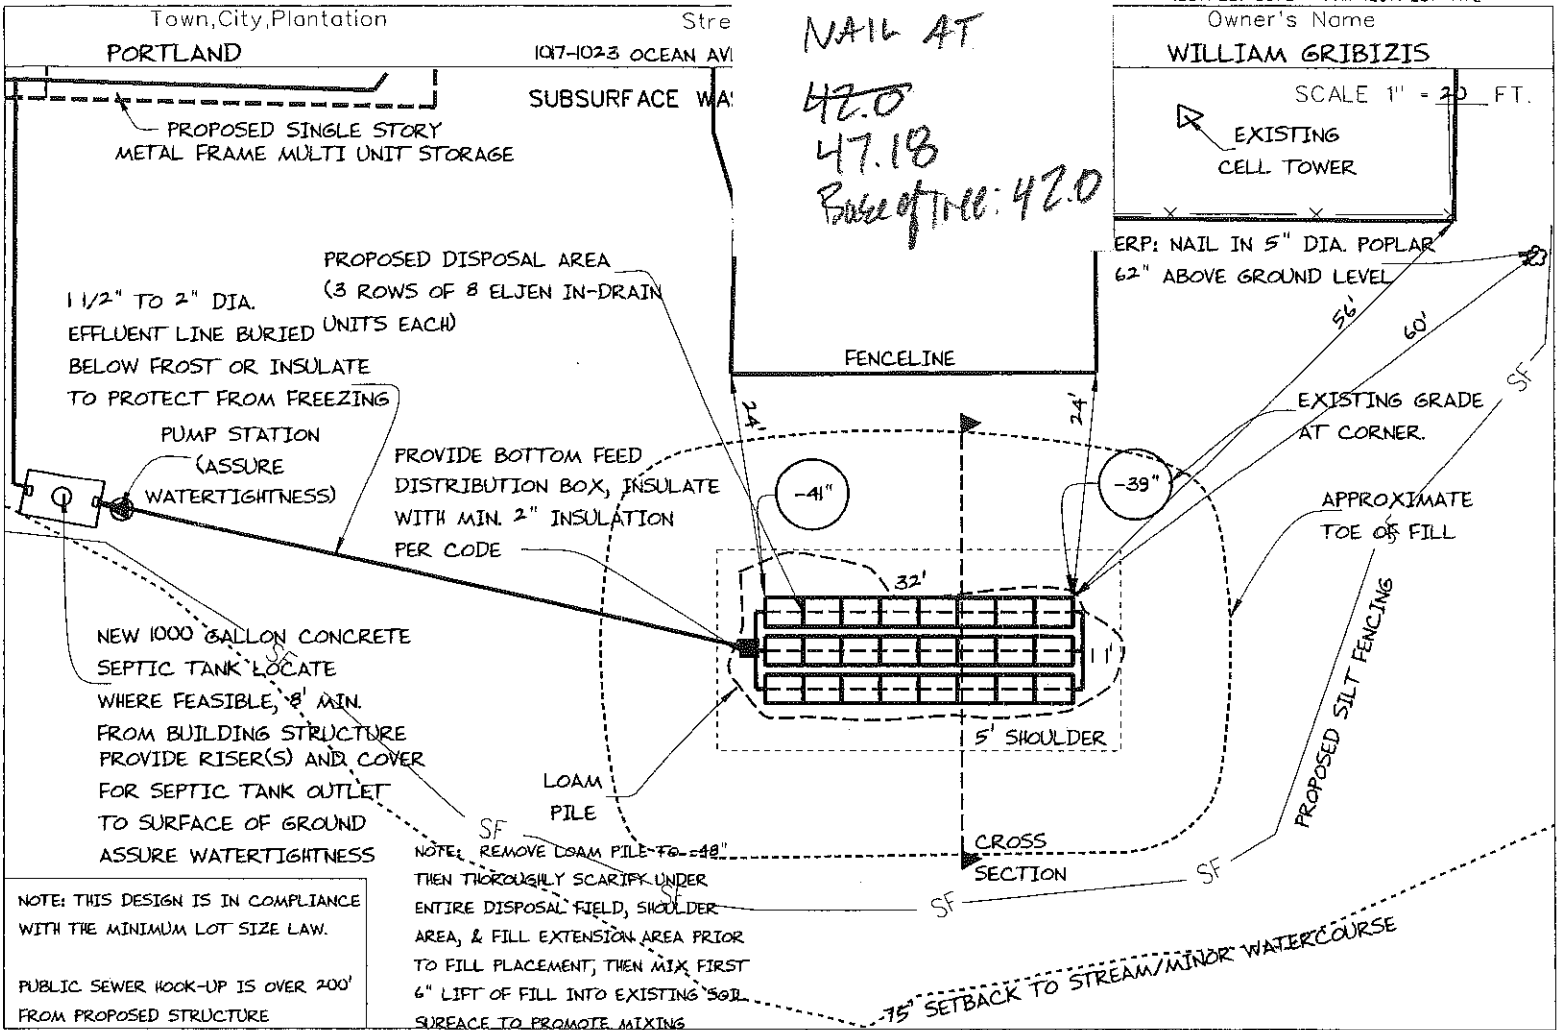 Town,City,Plantation
PORTLAND
Stre
1017-1023 OCEAN AV
SUBSURFACE WA
NAIL AT
42.0
47.18
Base of Tree: 42.0
Owner's Name
WILLIAM GRIBIZIS
SCALE 1" = 20 FT.
EXISTING
CELL TOWER
PROPOSED SINGLE STORY
METAL FRAME MULTI UNIT STORAGE
ERP: NAIL IN 5" DIA. POPLAR
62" ABOVE GROUND LEVEL
PROPOSED DISPOSAL AREA
(3 ROWS OF 8 ELJEN IN-DRAIN
UNITS EACH)
1 1/2" TO 2" DIA.
EFFLUENT LINE BURIED
BELOW FROST OR INSULATE
TO PROTECT FROM FREEZING
56'
60'
FENCELINE
24'
24'
SF
EXISTING GRADE
AT CORNER.
PUMP STATION
(ASSURE
WATERTIGHTNESS)
PROVIDE BOTTOM FEED
DISTRIBUTION BOX, INSULATE
WITH MIN. 2" INSULATION
PER CODE
-41"
-39"
APPROXIMATE
TOE OF FILL
SF
32'
11'
5' SHOULDER
NEW 1000 GALLON CONCRETE
SEPTIC TANK LOCATE
WHERE FEASIBLE, 8' MIN.
FROM BUILDING STRUCTURE
PROVIDE RISER(S) AND COVER
FOR SEPTIC TANK OUTLET
TO SURFACE OF GROUND
ASSURE WATERTIGHTNESS
SF
LOAM
PILE
PROPOSED SILT FENCING
SF
CROSS
SECTION
NOTE: REMOVE LOAM PILE TO -48"
THEN THOROUGHLY SCARIFY UNDER
ENTIRE DISPOSAL FIELD, SHOULDER
AREA, & FILL EXTENSION AREA PRIOR
TO FILL PLACEMENT, THEN MIX FIRST
6" LIFT OF FILL INTO EXISTING SOIL
SURFACE TO PROMOTE MIXING
SF
SF
SF
NOTE: THIS DESIGN IS IN COMPLIANCE
WITH THE MINIMUM LOT SIZE LAW.
PUBLIC SEWER HOOK-UP IS OVER 200'
FROM PROPOSED STRUCTURE
75' SETBACK TO STREAM/MINOR WATERCOURSE